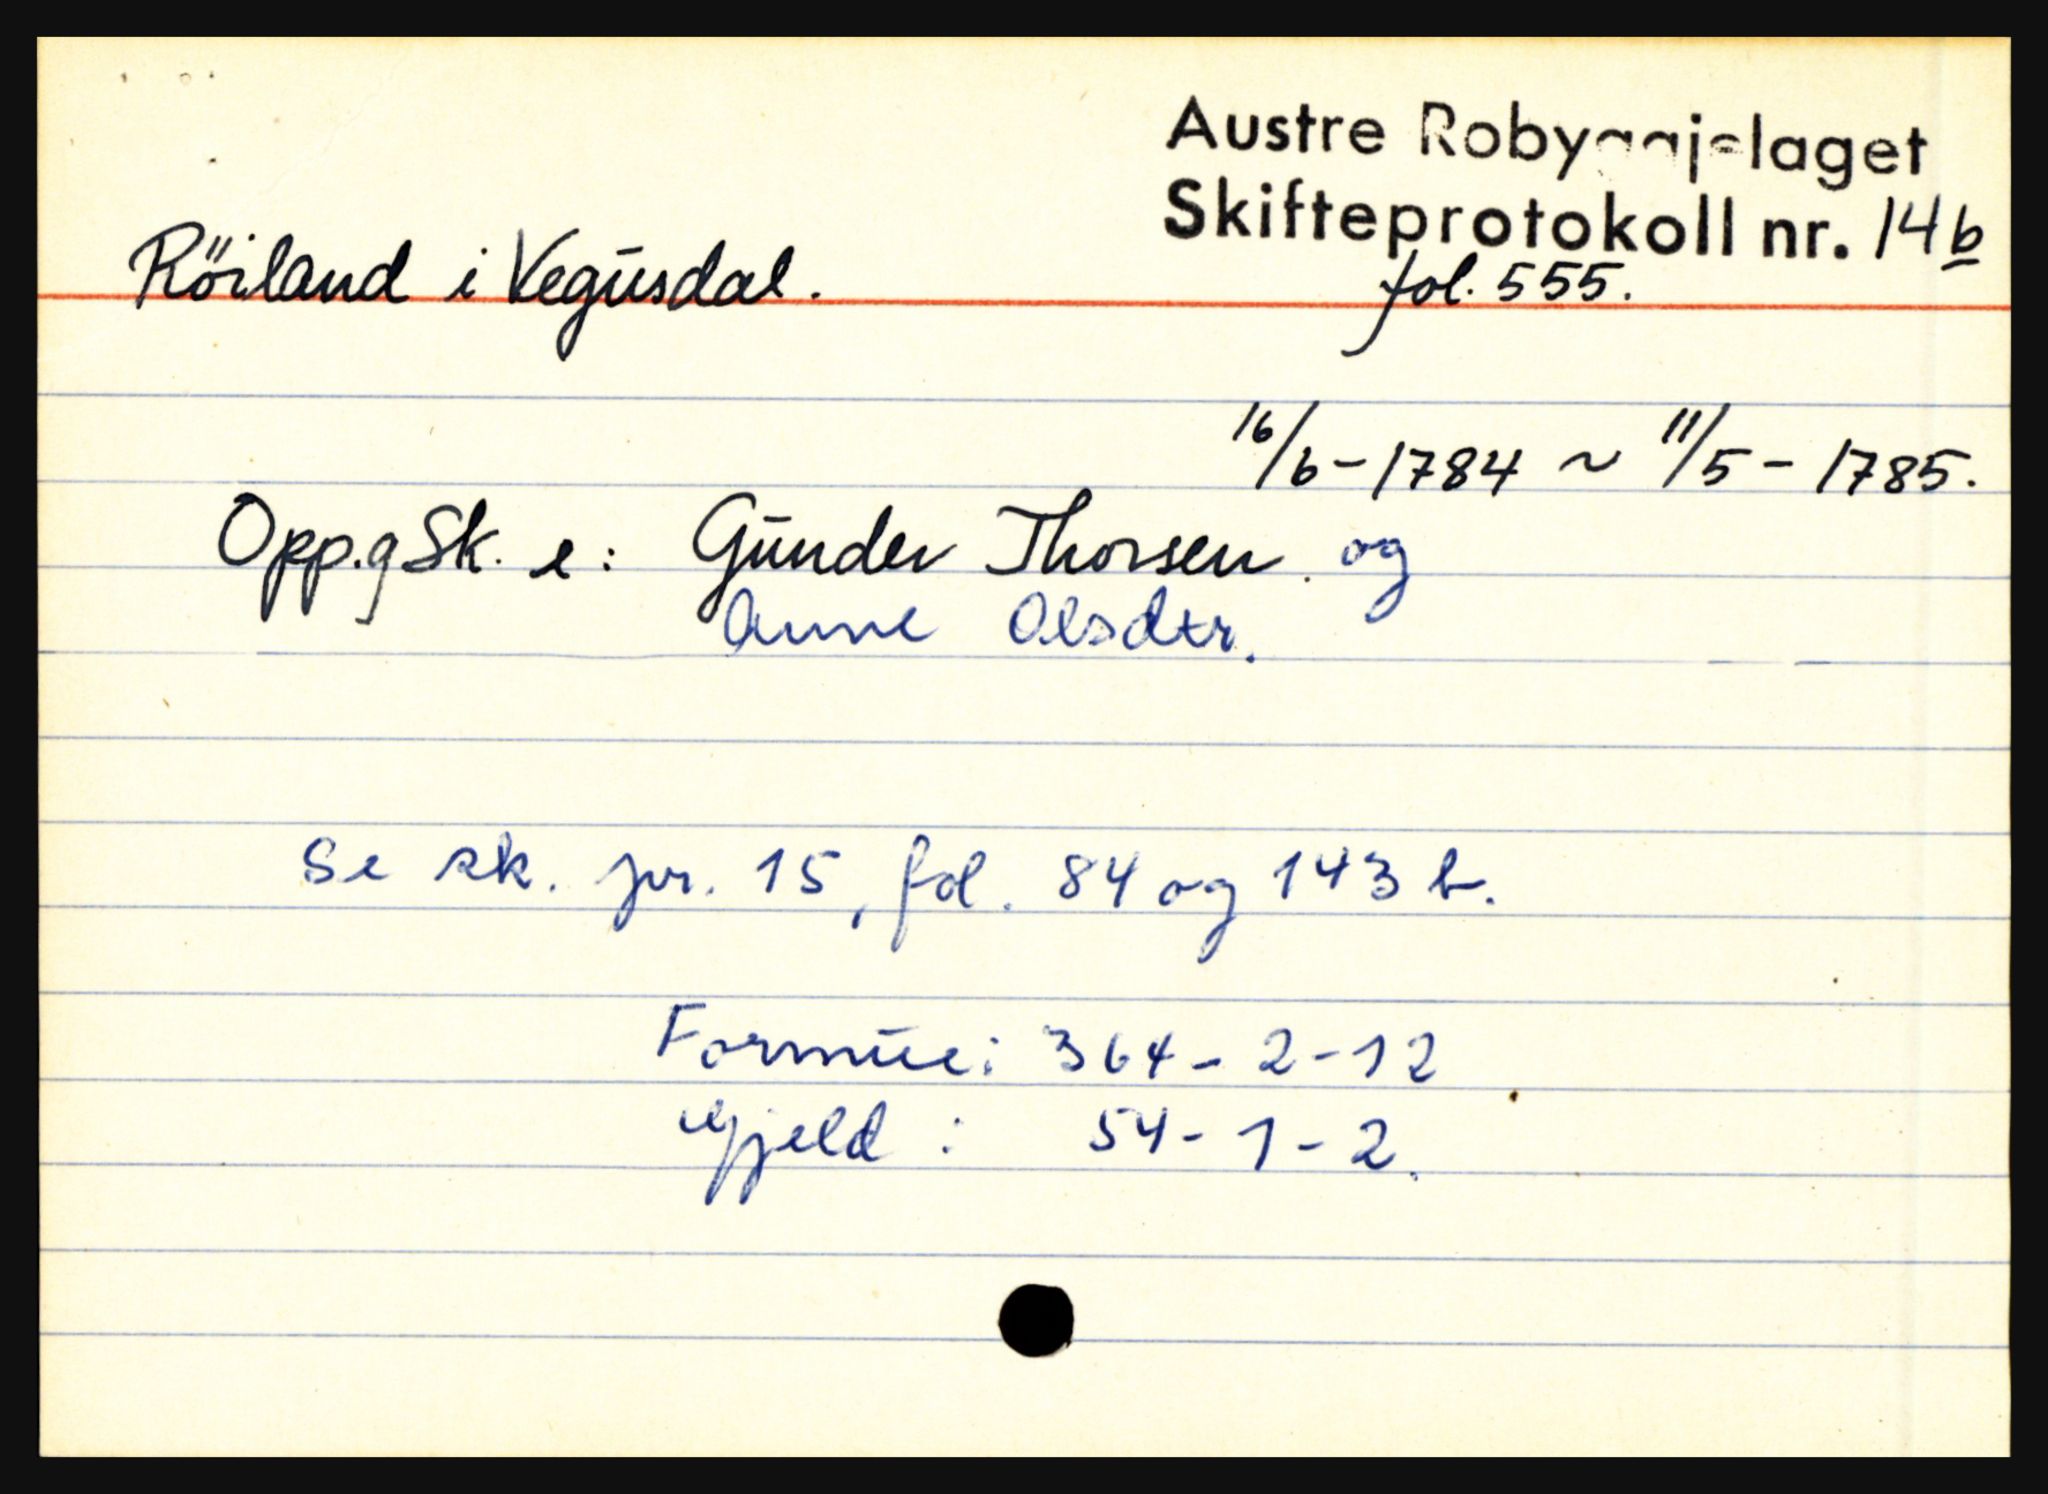 Austre Robyggjelaget
Skifteprotokoll nr. 14b
Röiland i Vegusdal. fol. 555.
16/6-1784 ~ 11/5-1785.
Opp.g Sk. e: Gunder Thorsen og
Anne Olsdtr.
Se sk. pr. 15, fol. 84 og 143 b.
Formue: 364-2-12
Gjeld: 54-1-2.